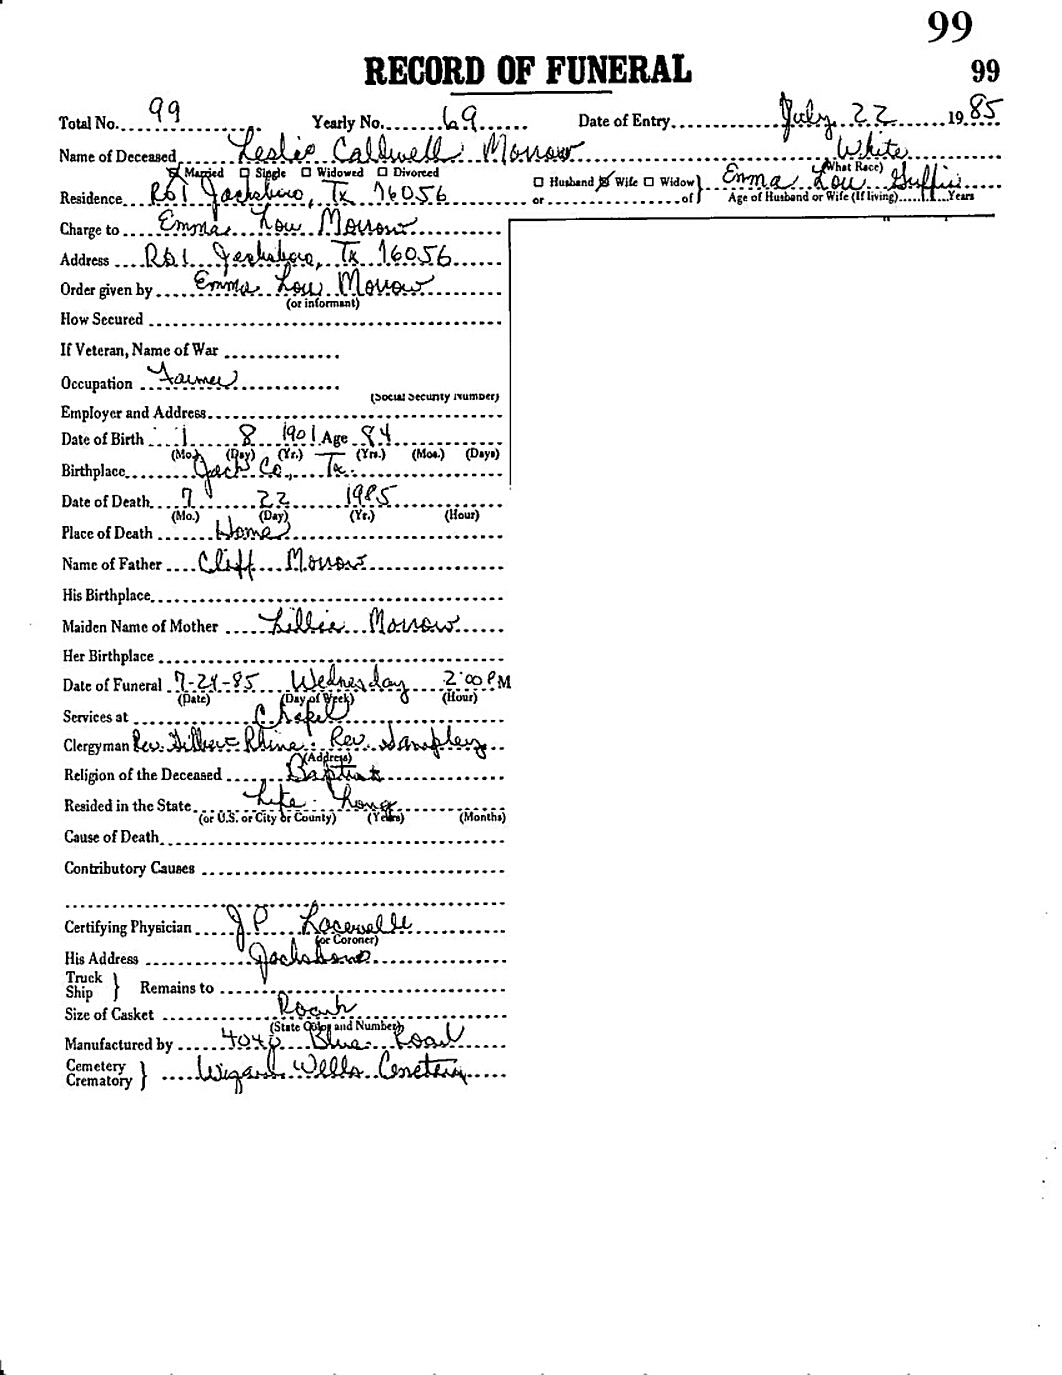 99
RECORD OF FUNERAL 99
Total No. 99 Yearly No. 69 Date of Entry July 22 1985
Name of Deceased Leslie Caldwell Morrow White
(What Race)
☒ Married ☐ Single ☐ Widowed ☐ Divorced
☐ Husband ☒ Wife ☐ Widow } Emma Lou Guffie
Residence Rt 1 Jacksboro, Tx 76056 or of Age of Husband or Wife (If living) Years
Charge to Emma Lou Morrow
Address Rt 1 Jacksboro, Tx 76056
Order given by Emma Lou Morrow
(or informant)
How Secured
If Veteran, Name of War
Occupation Farmer
(Social Security Number)
Employer and Address
Date of Birth 1 8 1901 Age 84
(Mo.) (Day) (Yr.) (Yrs.) (Mos.) (Days)
Birthplace Jack Co., Tx.
Date of Death 7 22 1985
(Mo.) (Day) (Yr.) (Hour)
Place of Death Home
Name of Father Cliff Morrow
His Birthplace
Maiden Name of Mother Lillie Morrow
Her Birthplace
Date of Funeral 7-24-85 Wednesday 2:00 PM
(Date) (Day of Week) (Hour)
Services at Chapel
Clergyman Rev. Gilbert Rhine. Rev. Sampley
(Address)
Religion of the Deceased Baptist
Resided in the State Life Long
(or U.S. or City or County) (Years) (Months)
Cause of Death
Contributory Causes
Certifying Physician JP
(or Coroner)
His Address Jacksboro
Truck
Ship } Remains to
Size of Casket
(State Color and Number)
Manufactured by Blue
Cemetery
Crematory } Wizard Wells Cemetery